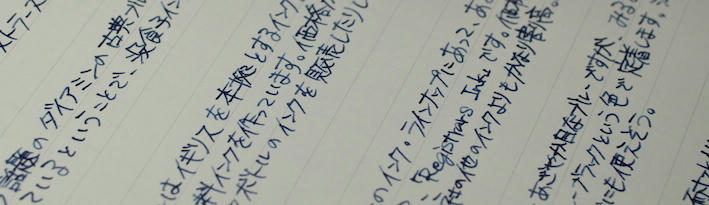 ストラーズ
話題のダイアミンの古典ブル
ているということで、没食子イン
はイギリスを本拠とするインク
料インクを作っています。価格
ボトルのインクを販売したりし
のインク・ラインナップにあって、あ
「Registrars Ink」です。価
の他のインクよりもかなり高価。
あざやか目なブルーですが、みる
ブラックという色で定着します。
にも使えそう。